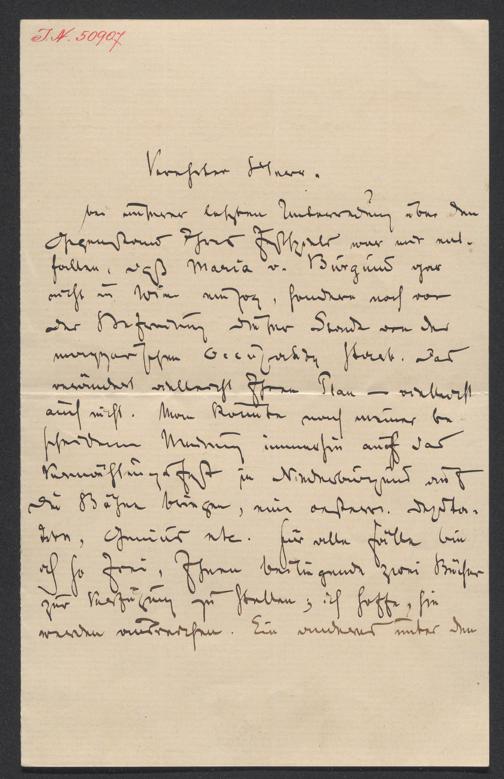 J.N. 50907
Verehrter Herr.
bei unserer letzten Unterredung über den
Gegenstand Ihres Festspiels war mir ent-
fallen, daß Maria v. Burgund gar
nicht in Wien einzog, sondern noch vor
der Befreiung dieser Stadt von der
magyarischen Occupation starb. Das
verändert vielleicht Ihren Plan — vielleicht
auch nicht. Man könnte nach meiner be
scheidenen Meinung immerhin auf das
Vermählungsfest in Niederburgund auf
die Bühne bringen, eine oesterr. Deputa-
tion, Genius etc. Für alle Fälle bin
ich so frei, Ihnen beiliegende zwei Bücher
zur Verfügung zu stellen; ich hoffe, sie
werden ausreichen. Ein anderes unter den